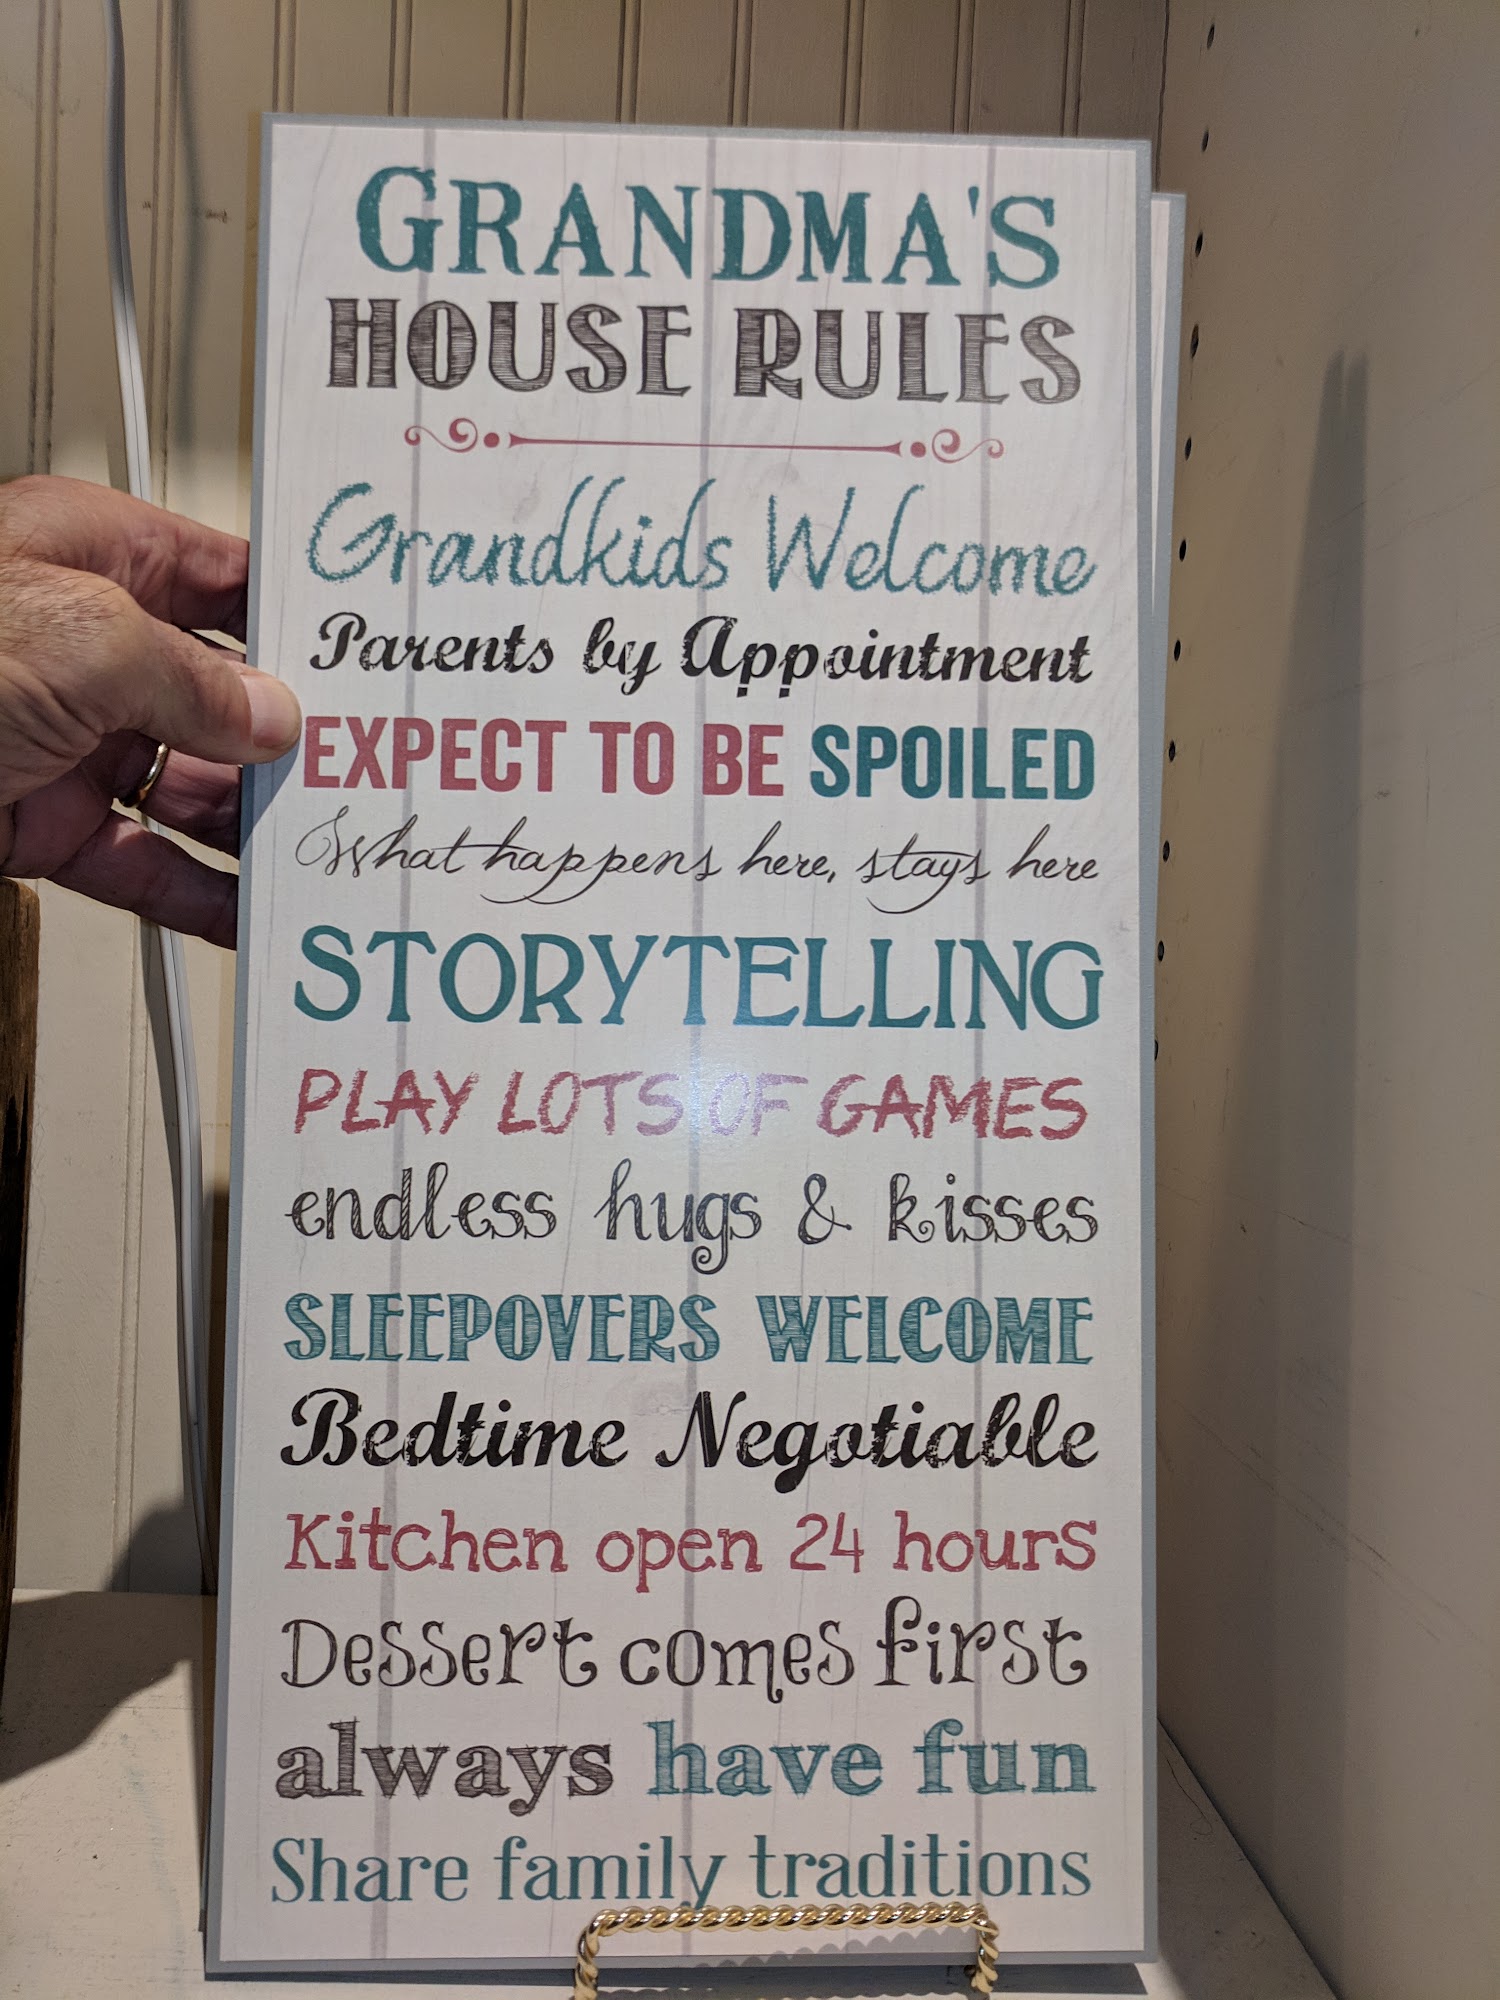 GRANDMA'S
HOUSE RULES
Grandkids Welcome
Parents by Appointment
EXPECT TO BE SPOILED
What happens here, stays here
STORYTELLING
PLAY LOTS OF GAMES
endless hugs & kisses
SLEEPOVERS WELCOME
Bedtime Negotiable
Kitchen open 24 hours
Dessert comes first
always have fun
Share family traditions